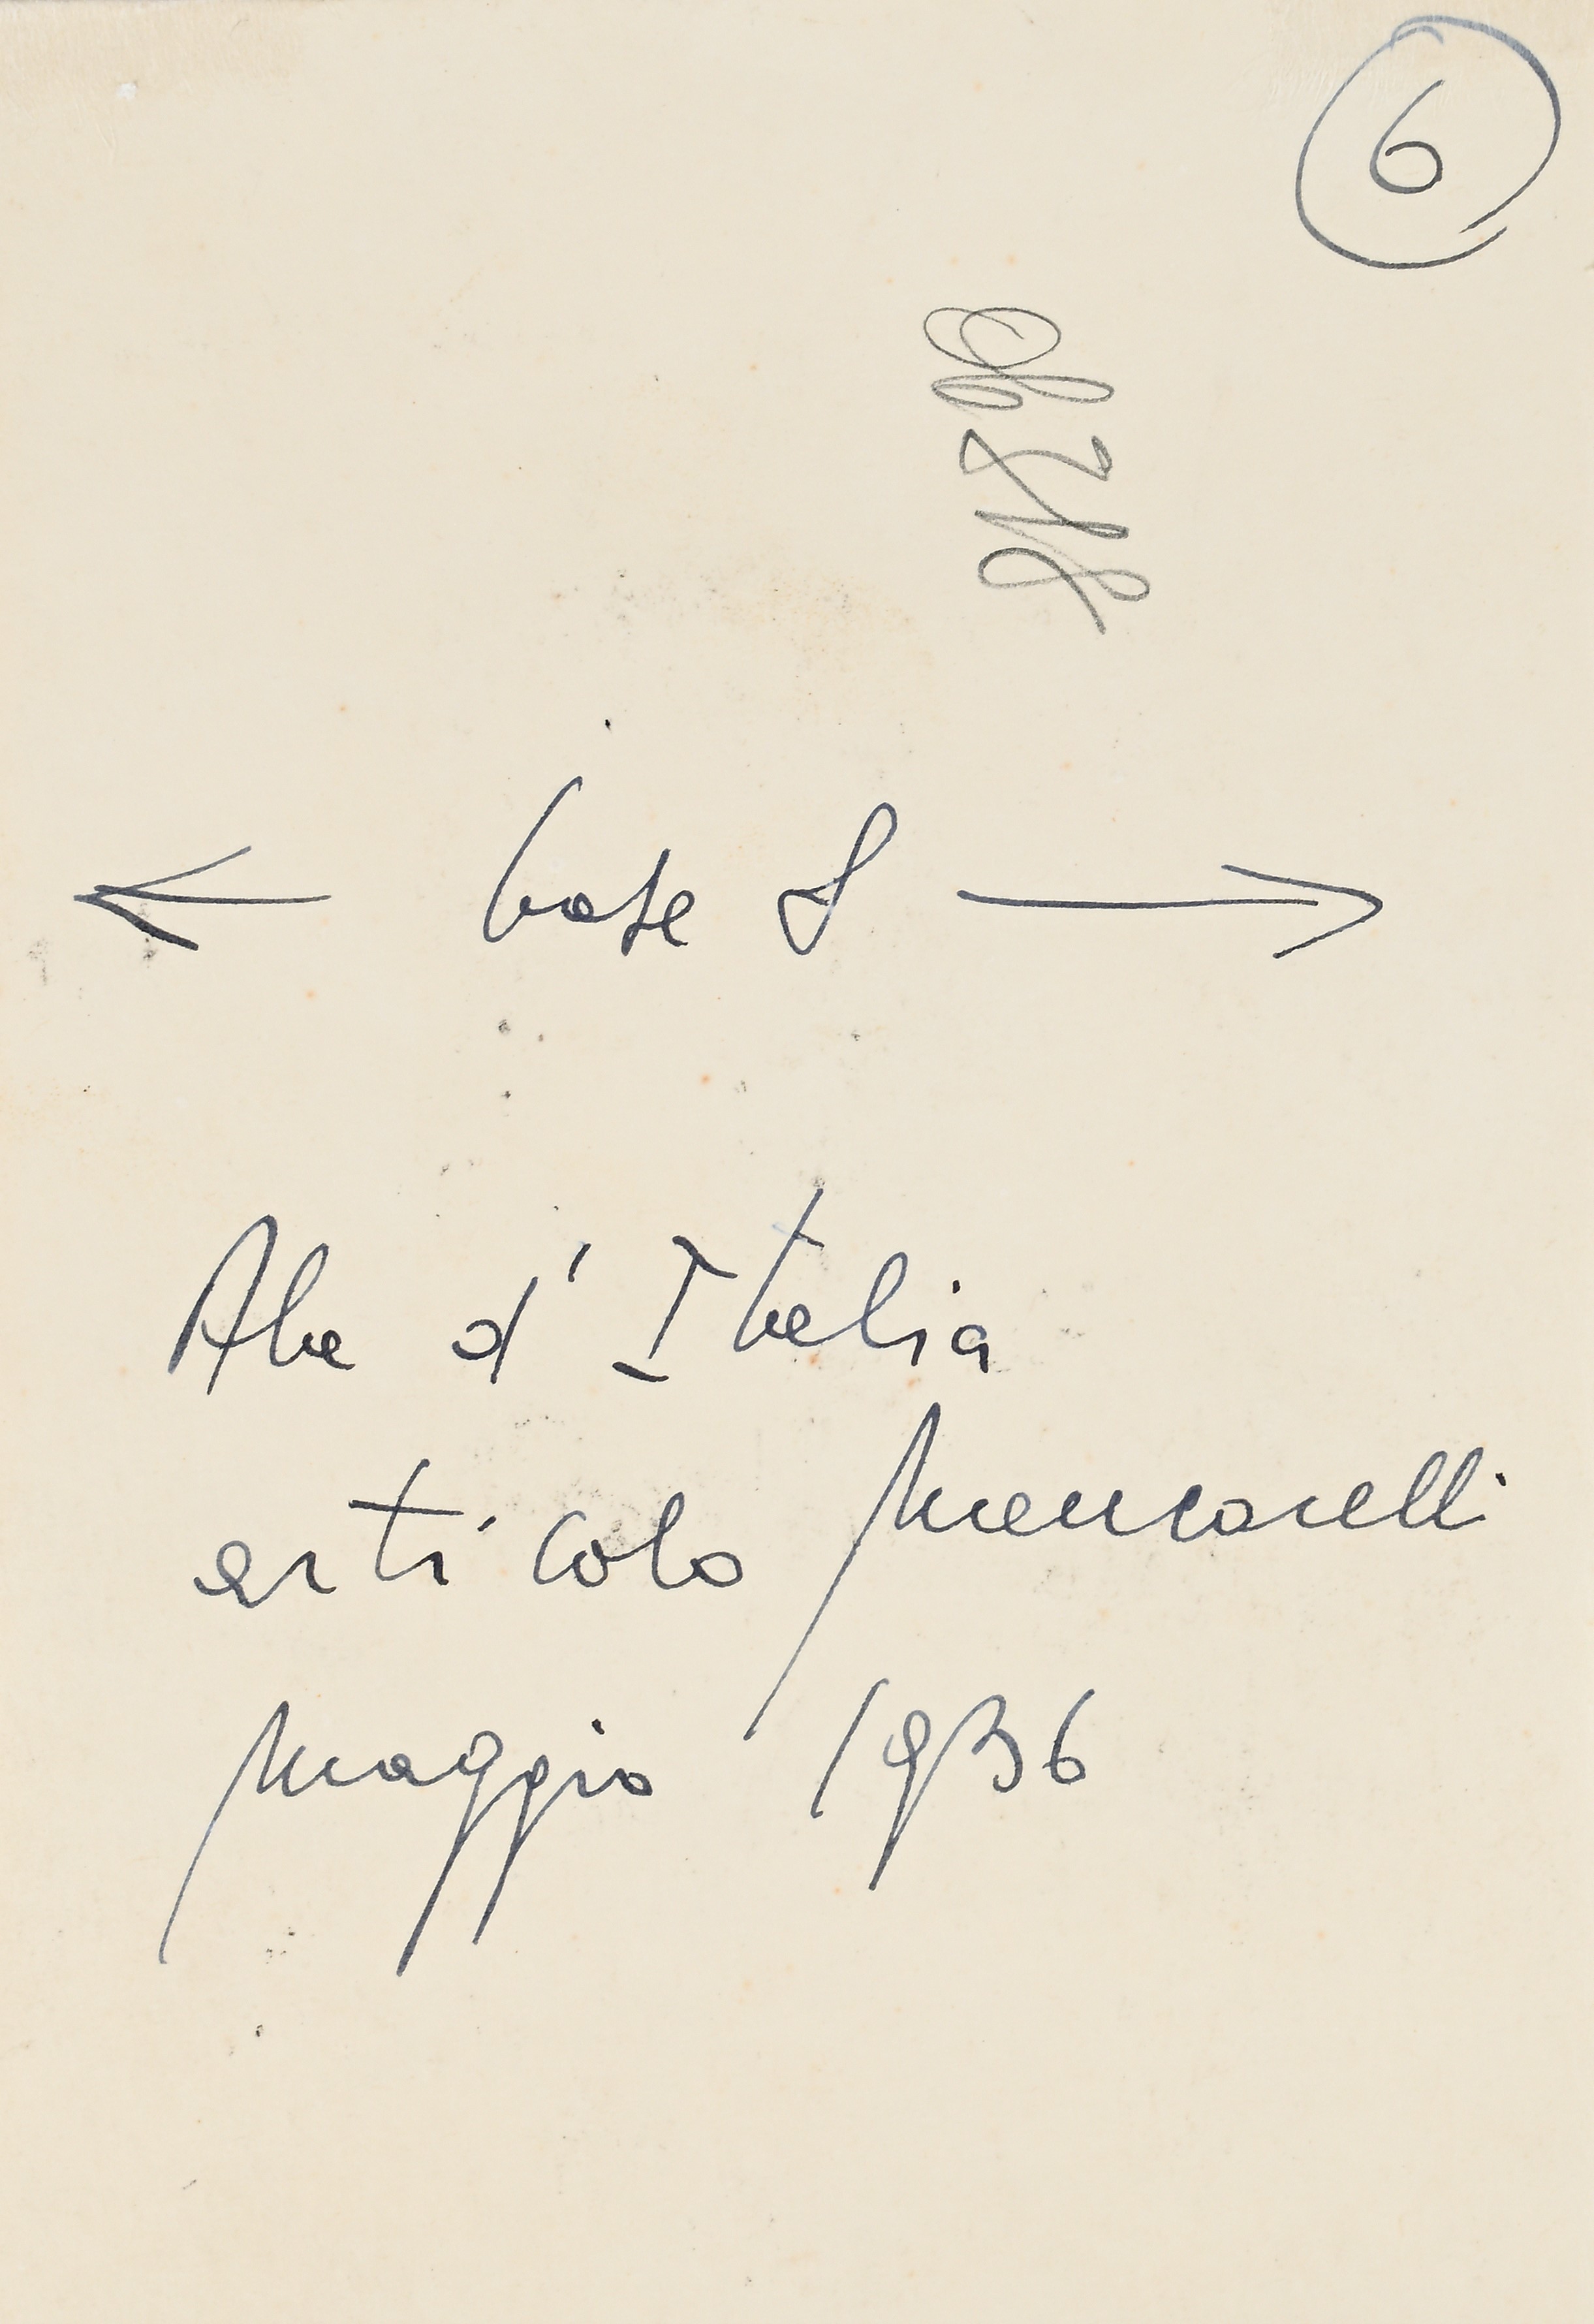 6
← base 8 →
Ala d'Italia
articolo Mencarelli
Maggio 1936